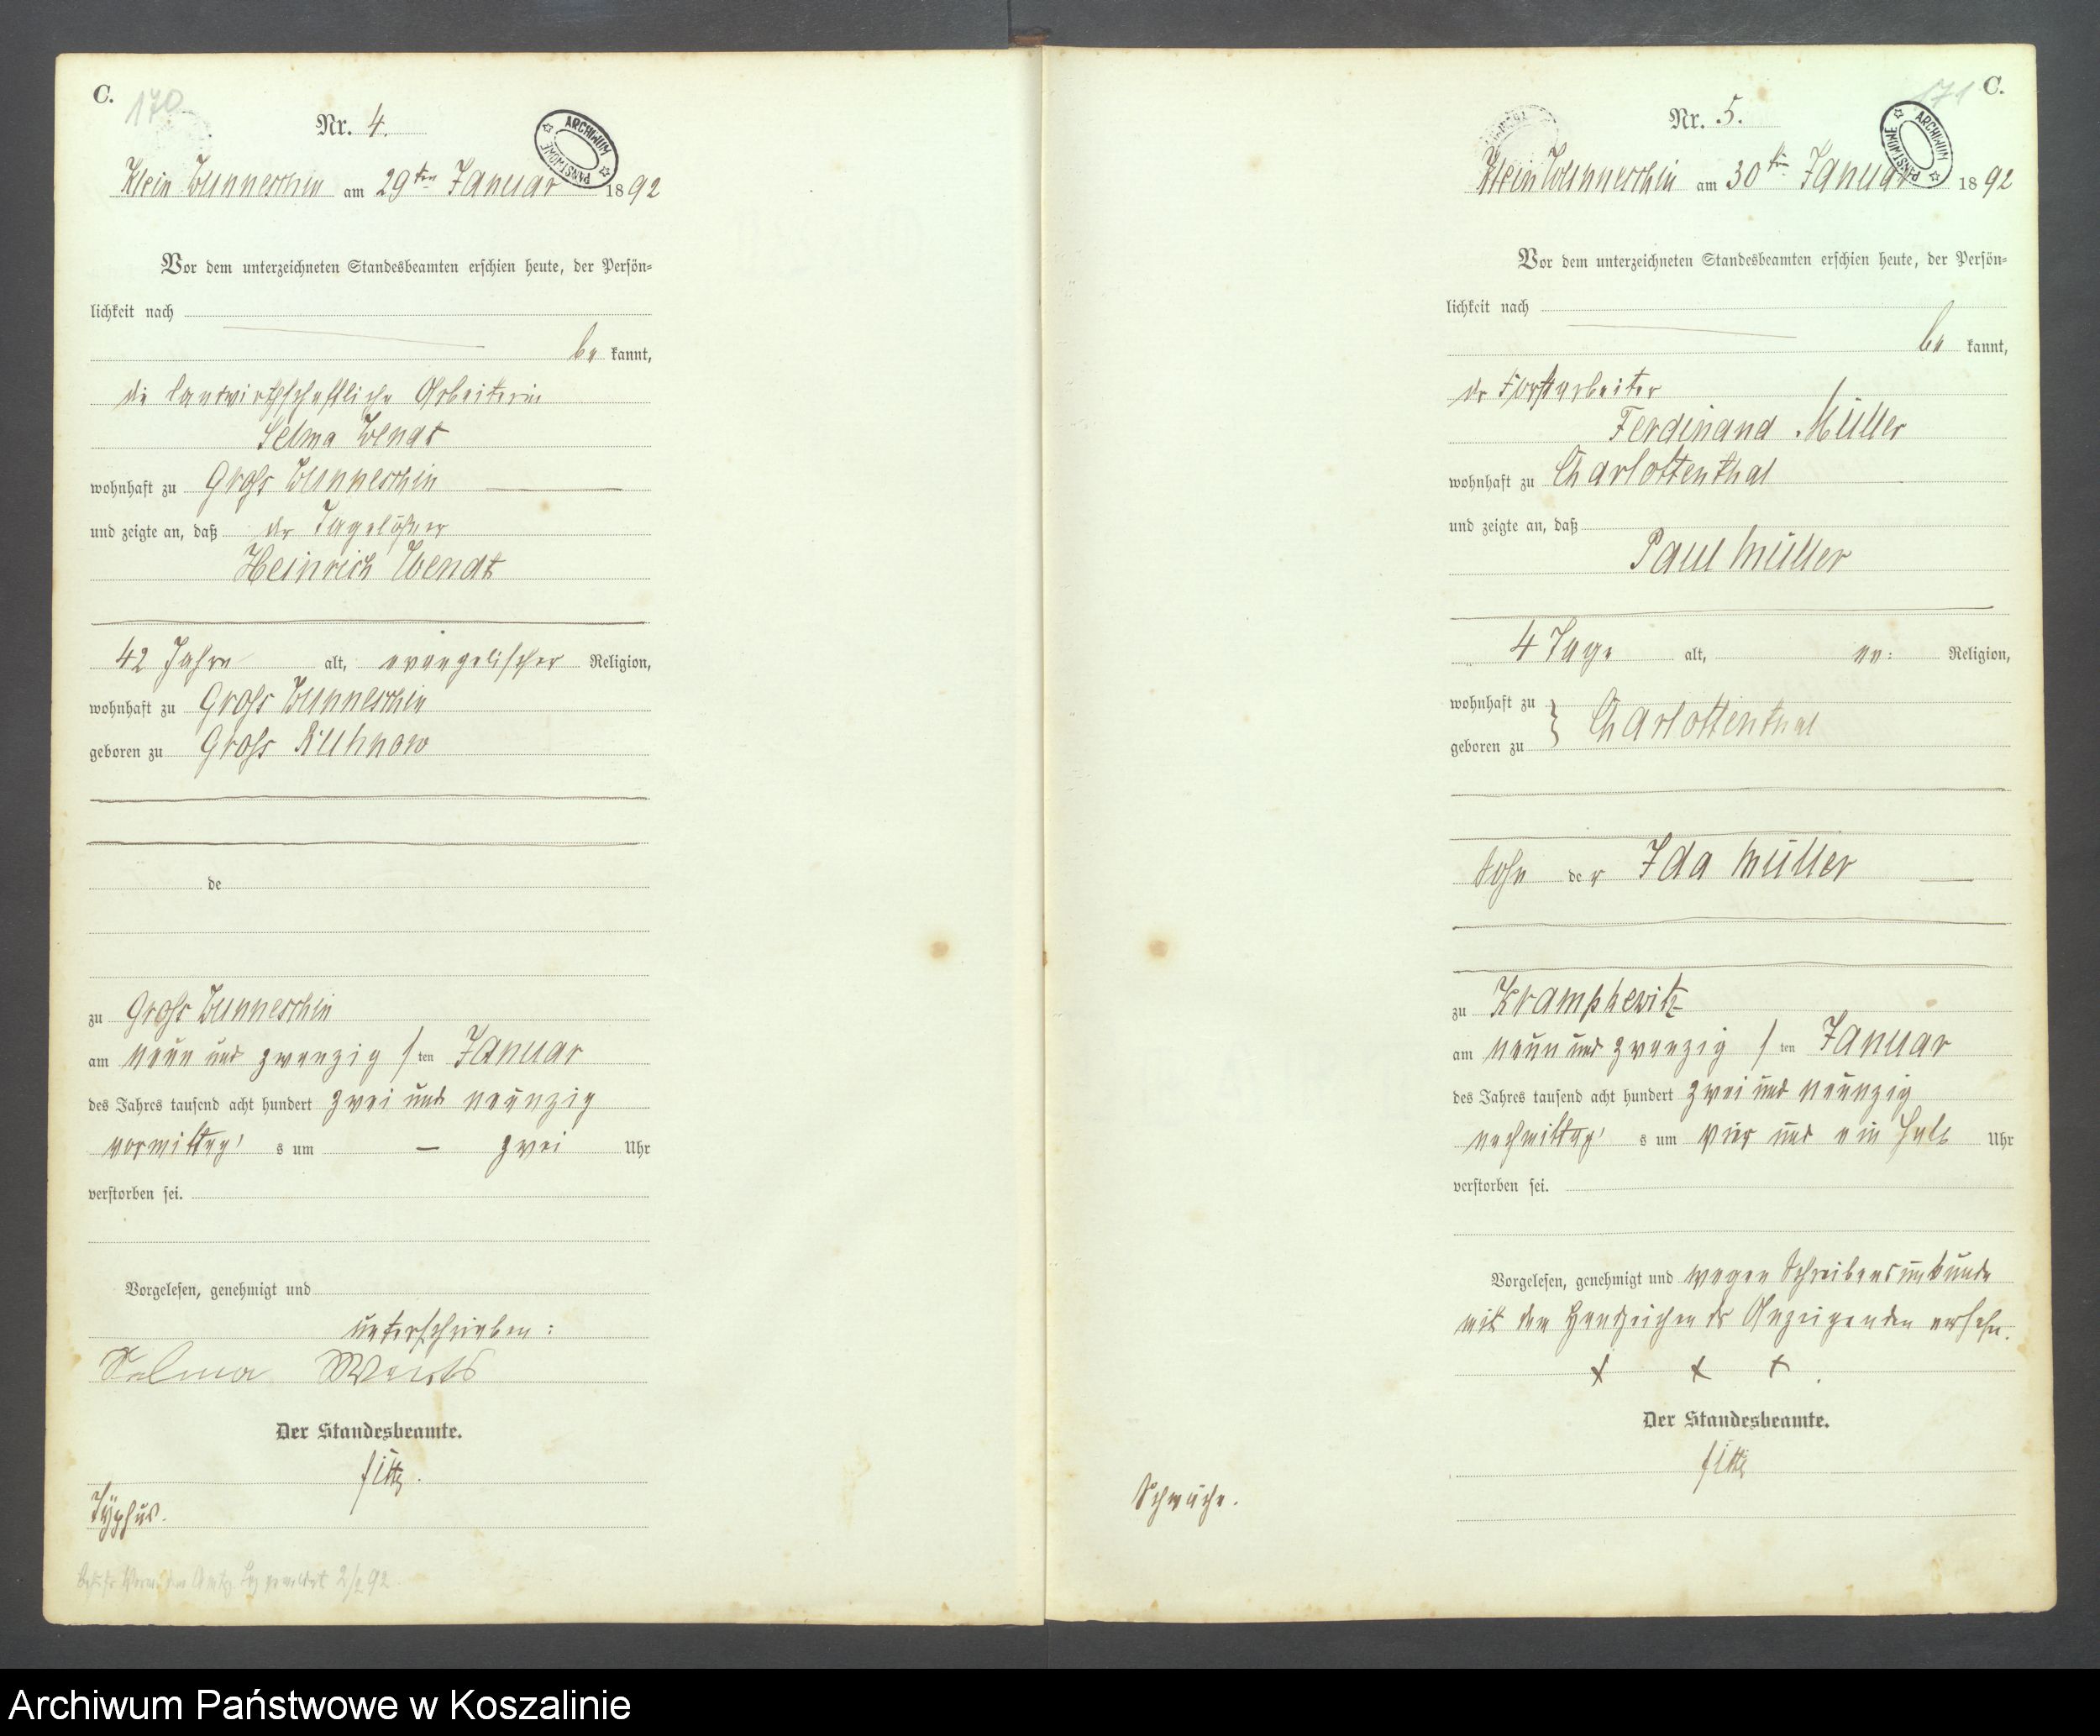 C.
170
Nr. 4.
ARCHIWUM PAŃSTWOWE
Klein Wunneschin am 29ten Januar 1892
Vor dem unterzeichneten Standesbeamten erschien heute, der Persön-
lichkeit nach
be kannt,
die landwirthschaftliche Arbeiterin
Selma Wendt
wohnhaft zu Gross Wunneschin
und zeigte an, daß der Tagelöhner
Heinrich Wendt
42 Jahre alt, evangelischer Religion,
wohnhaft zu Gross Wunneschin
geboren zu Gross Runow
de
zu Gross Wunneschin
am neun und zwanzig / ten Januar
des Jahres tausend acht hundert zwei und neunzig
vormittag's um — zwei Uhr
verstorben sei.
Vorgelesen, genehmigt und
unterschrieben:
Selma
Der Standesbeamte.
Typhus.
gemeldet 2/2 92
171
C.
Nr. 5.
ARCHIWUM PAŃSTWOWE
Klein Wunneschin am 30ten Januar 1892
Vor dem unterzeichneten Standesbeamten erschien heute, der Persön-
lichkeit nach
be kannt,
der Forstarbeiter
Ferdinand Müller
wohnhaft zu Charlottenthal
und zeigte an, daß
Paul Müller
4 Tage alt, ev: Religion,
wohnhaft zu } Charlottenthal
geboren zu
Sohn der Ida Müller
zu Kramphewitz
am neun und zwanzig / ten Januar
des Jahres tausend acht hundert zwei und neunzig
nachmittag's um vier und ein halb Uhr
verstorben sei.
Vorgelesen, genehmigt und wegen Schreibensunkunde
mit dem Handzeichen des Anzeigenden versehn.
+ + +
Der Standesbeamte.
Schwäche.
Archiwum Państwowe w Koszalinie